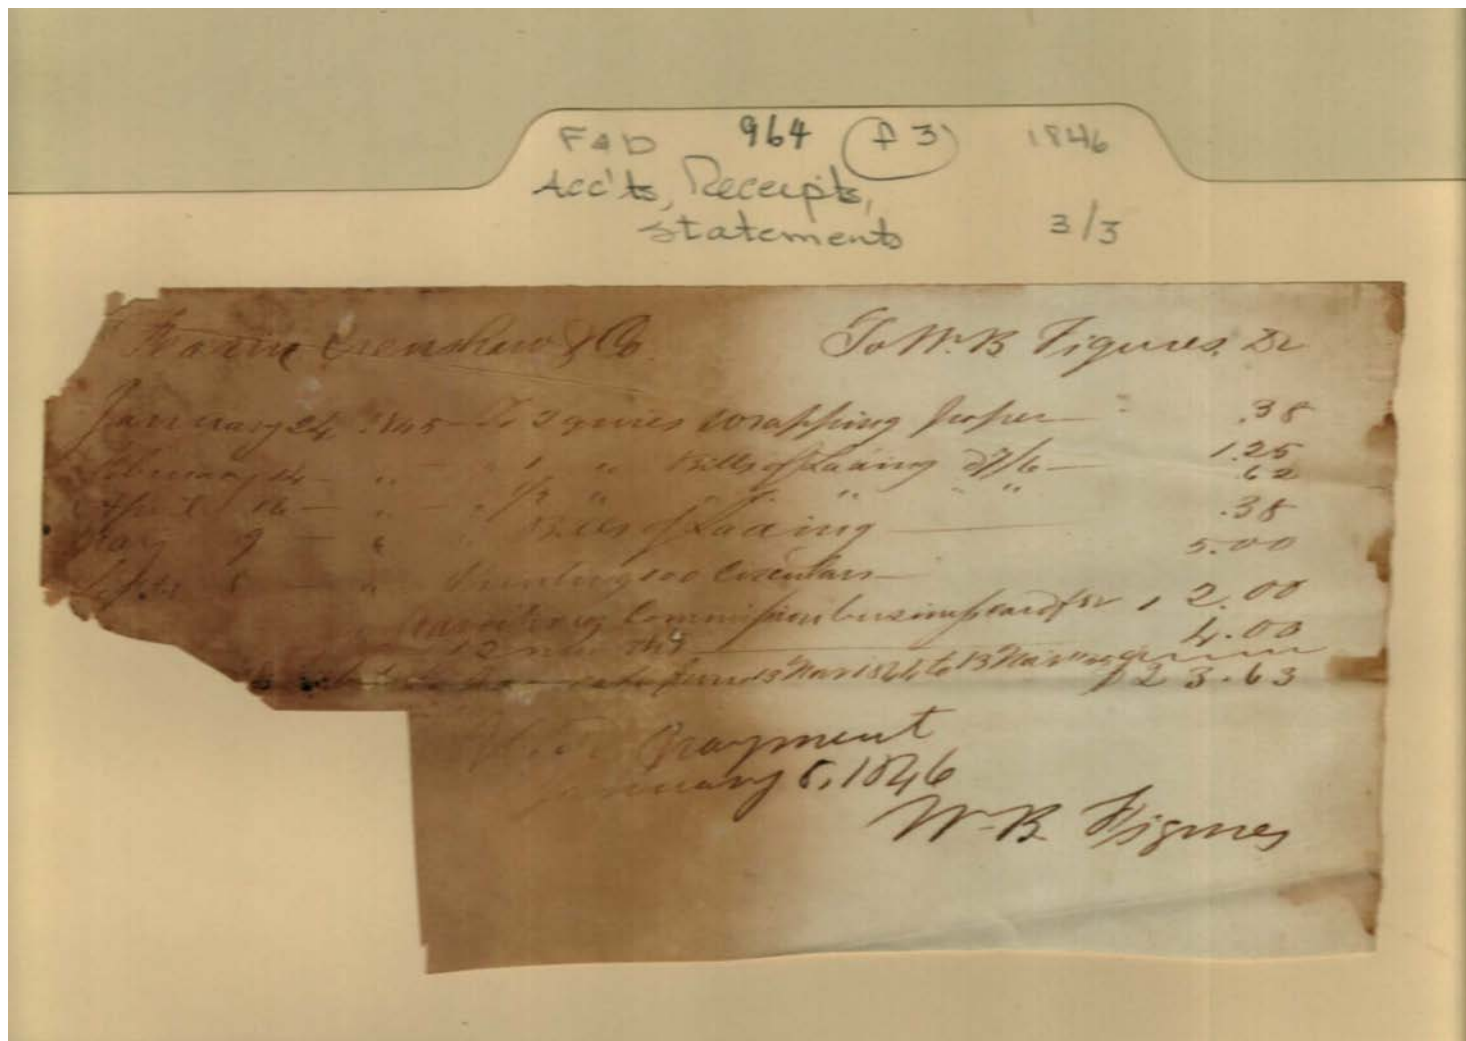 F&D 964 f 3 1846
Acc'ts, Receipts,
Statements 3/3
Crenshaw & Co. To W. B Figures, Dr
January 24 1845 To 2 quires wrapping paper " .38
February " " 1 " Bills of Lading 1.25
April 16 " " 1/2 " " " " " .62
May 9 " Bills of Lading .38
Sept 5 " Printing 100 Circulars 5.00
Commission business card for 2.00
12 4.00
from 13 Nov 1844 to 13 Nov $23.63
Payment
January 5, 1846
W. B. Figures